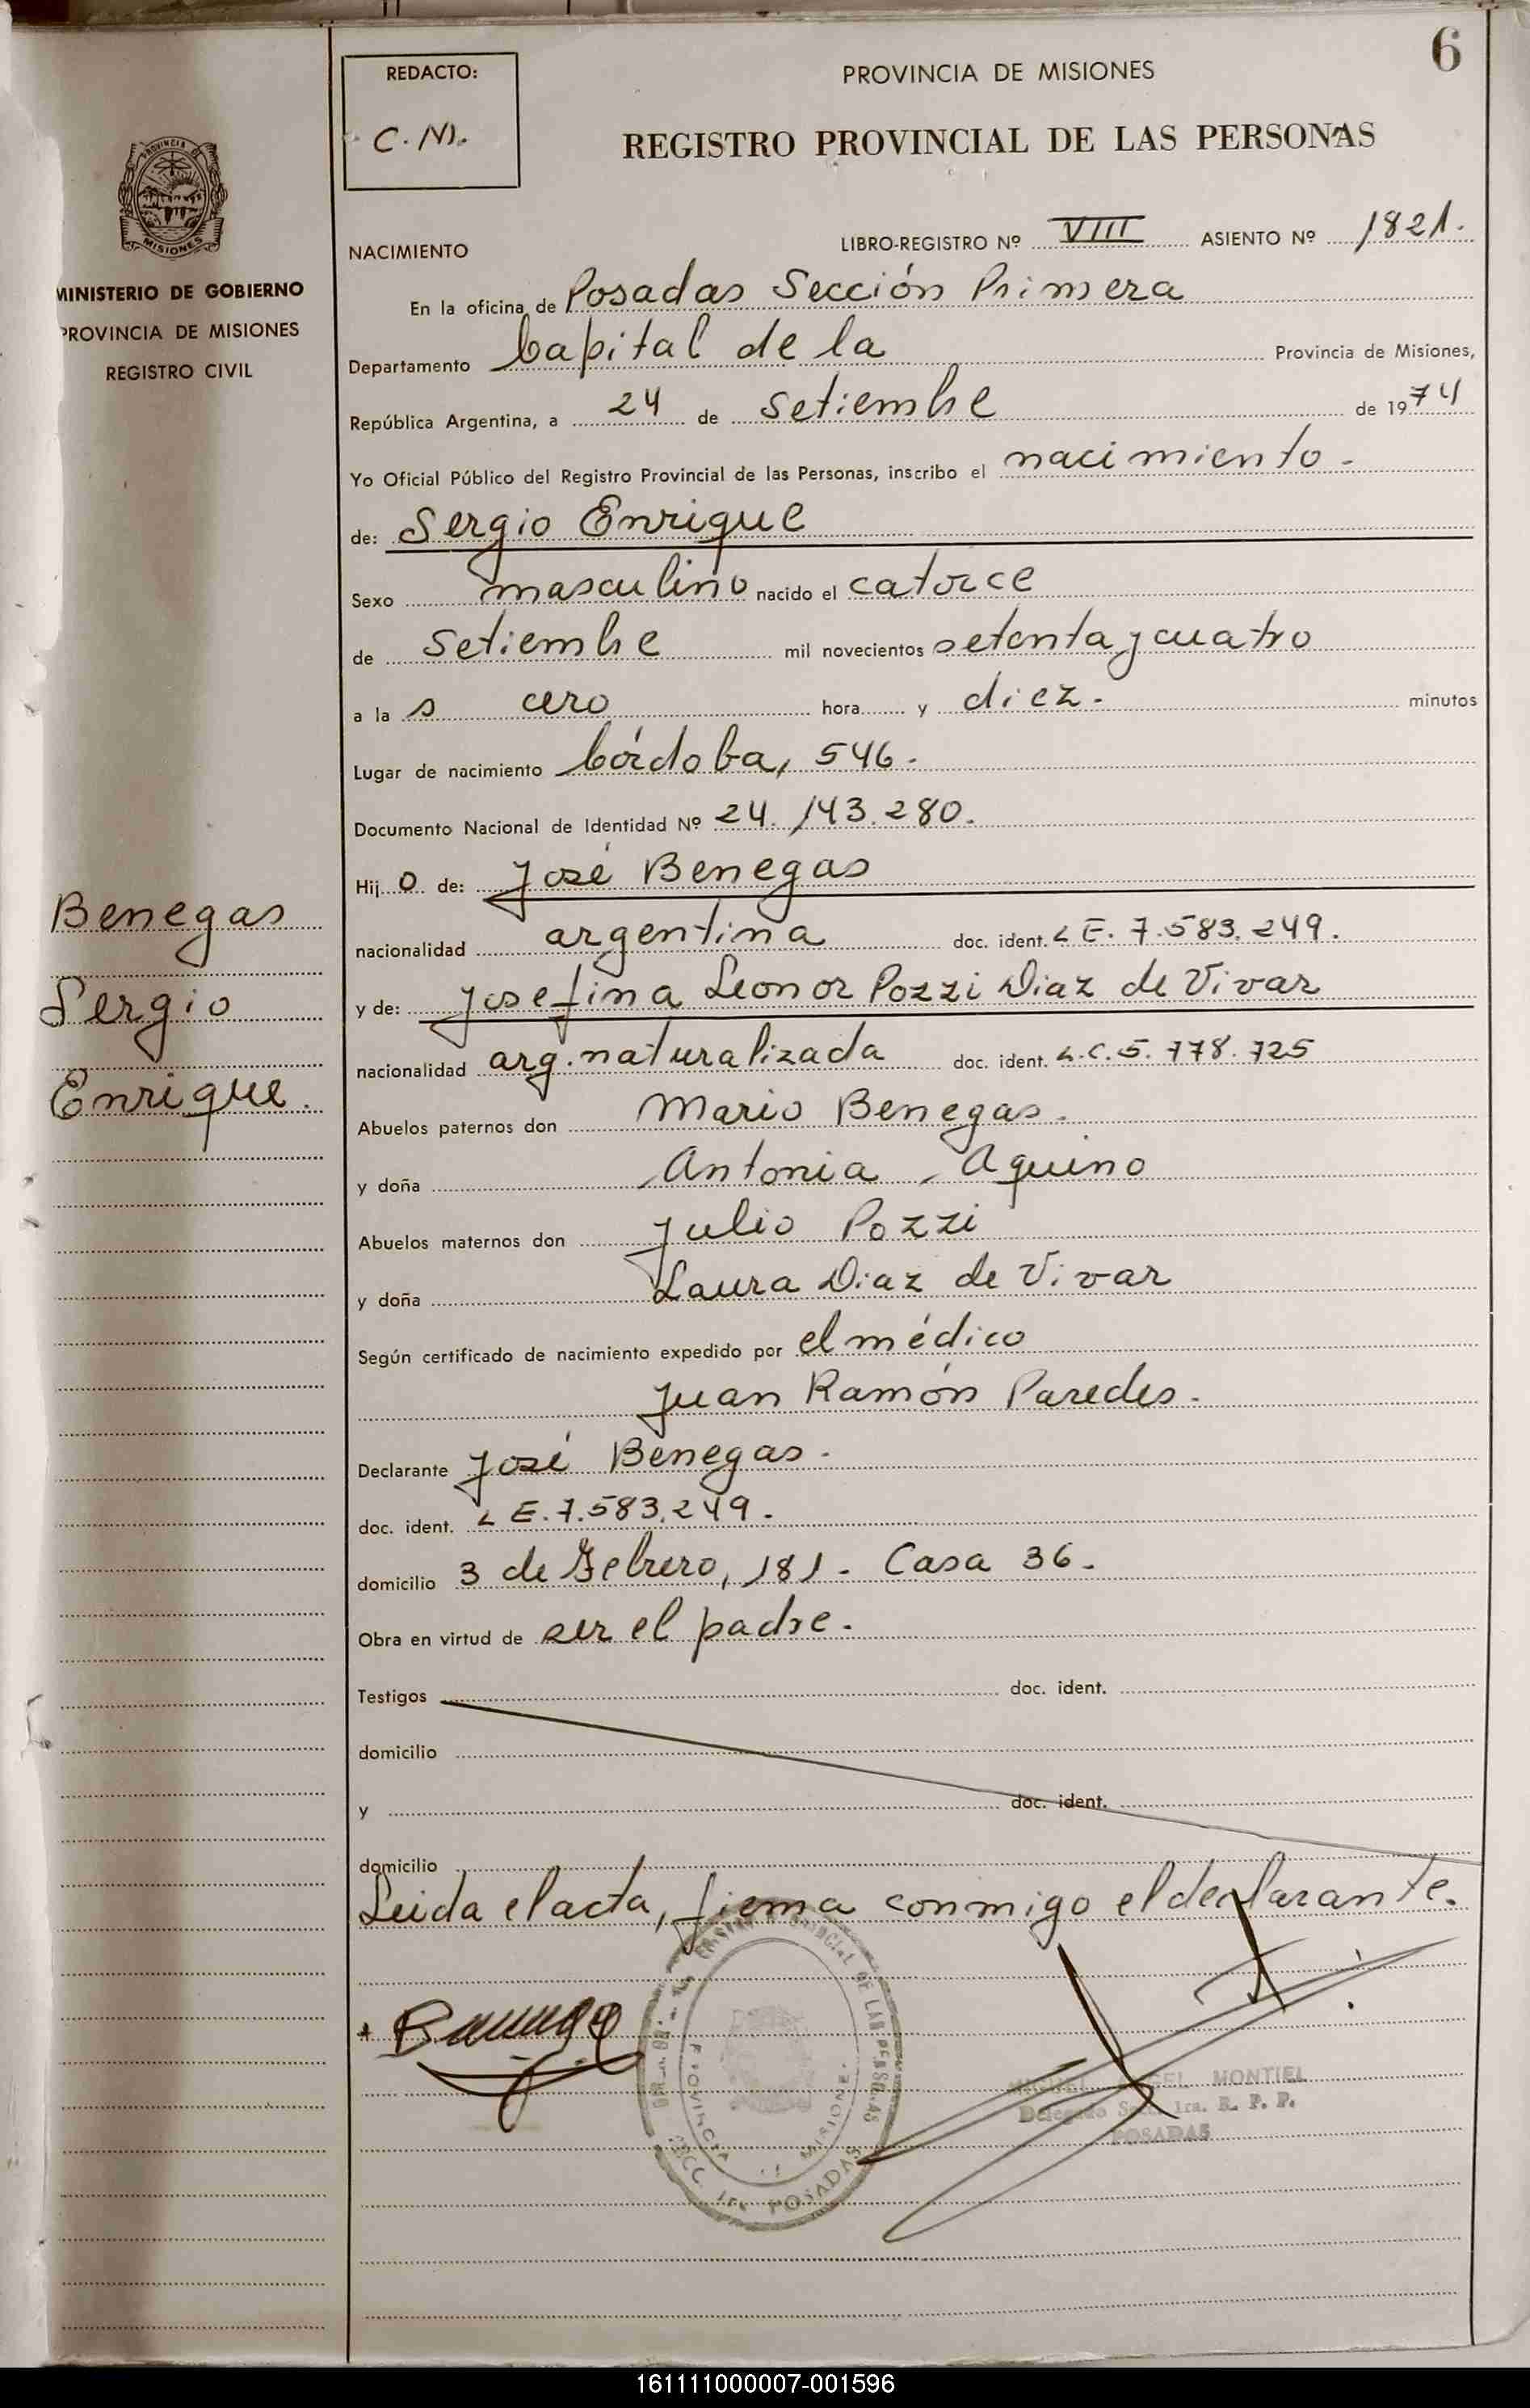 6
REDACTO:
C. N.
PROVINCIA DE MISIONES
REGISTRO PROVINCIAL DE LAS PERSONAS
PROVINCIA DE
MISIONES
MINISTERIO DE GOBIERNO
PROVINCIA DE MISIONES
REGISTRO CIVIL
NACIMIENTO
LIBRO-REGISTRO Nº VIII ASIENTO Nº 1821.
En la oficina de Posadas Sección Primera
Departamento Capital de la Provincia de Misiones,
República Argentina, a 24 de Setiembre de 1974
Yo Oficial Público del Registro Provincial de las Personas, inscribo el nacimiento.
de: Sergio Enrique
Sexo masculino nacido el catorce
de Setiembre mil novecientos setenta y cuatro
a la s cero hora y diez. minutos
Lugar de nacimiento Córdoba, 546.
Documento Nacional de Identidad Nº 24.143.280.
Hij o de: José Benegas
nacionalidad argentina doc. ident. L E. 7.583.249.
y de: Josefina Leonor Pozzi Diaz de Vivar
nacionalidad arg. naturalizada doc. ident. L.C. 5.778.725
Abuelos paternos don Mario Benegas.
y doña Antonia Aquino
Abuelos maternos don Julio Pozzi
y doña Laura Diaz de Vivar
Según certificado de nacimiento expedido por el médico
Juan Ramón Paredes.
Declarante José Benegas.
doc. ident. L E. 7.583.249.
domicilio 3 de Febrero, 181. Casa 36.
Obra en virtud de ser el padre.
Testigos doc. ident.
domicilio
y doc. ident.
domicilio
Leida el acta, firma conmigo el declarante.
Benegas
Sergio
Enrique.
MIGUEL ANGEL MONTIEL
Delegado Secc. 1ra. R. P. P.
POSADAS
161111000007-001596